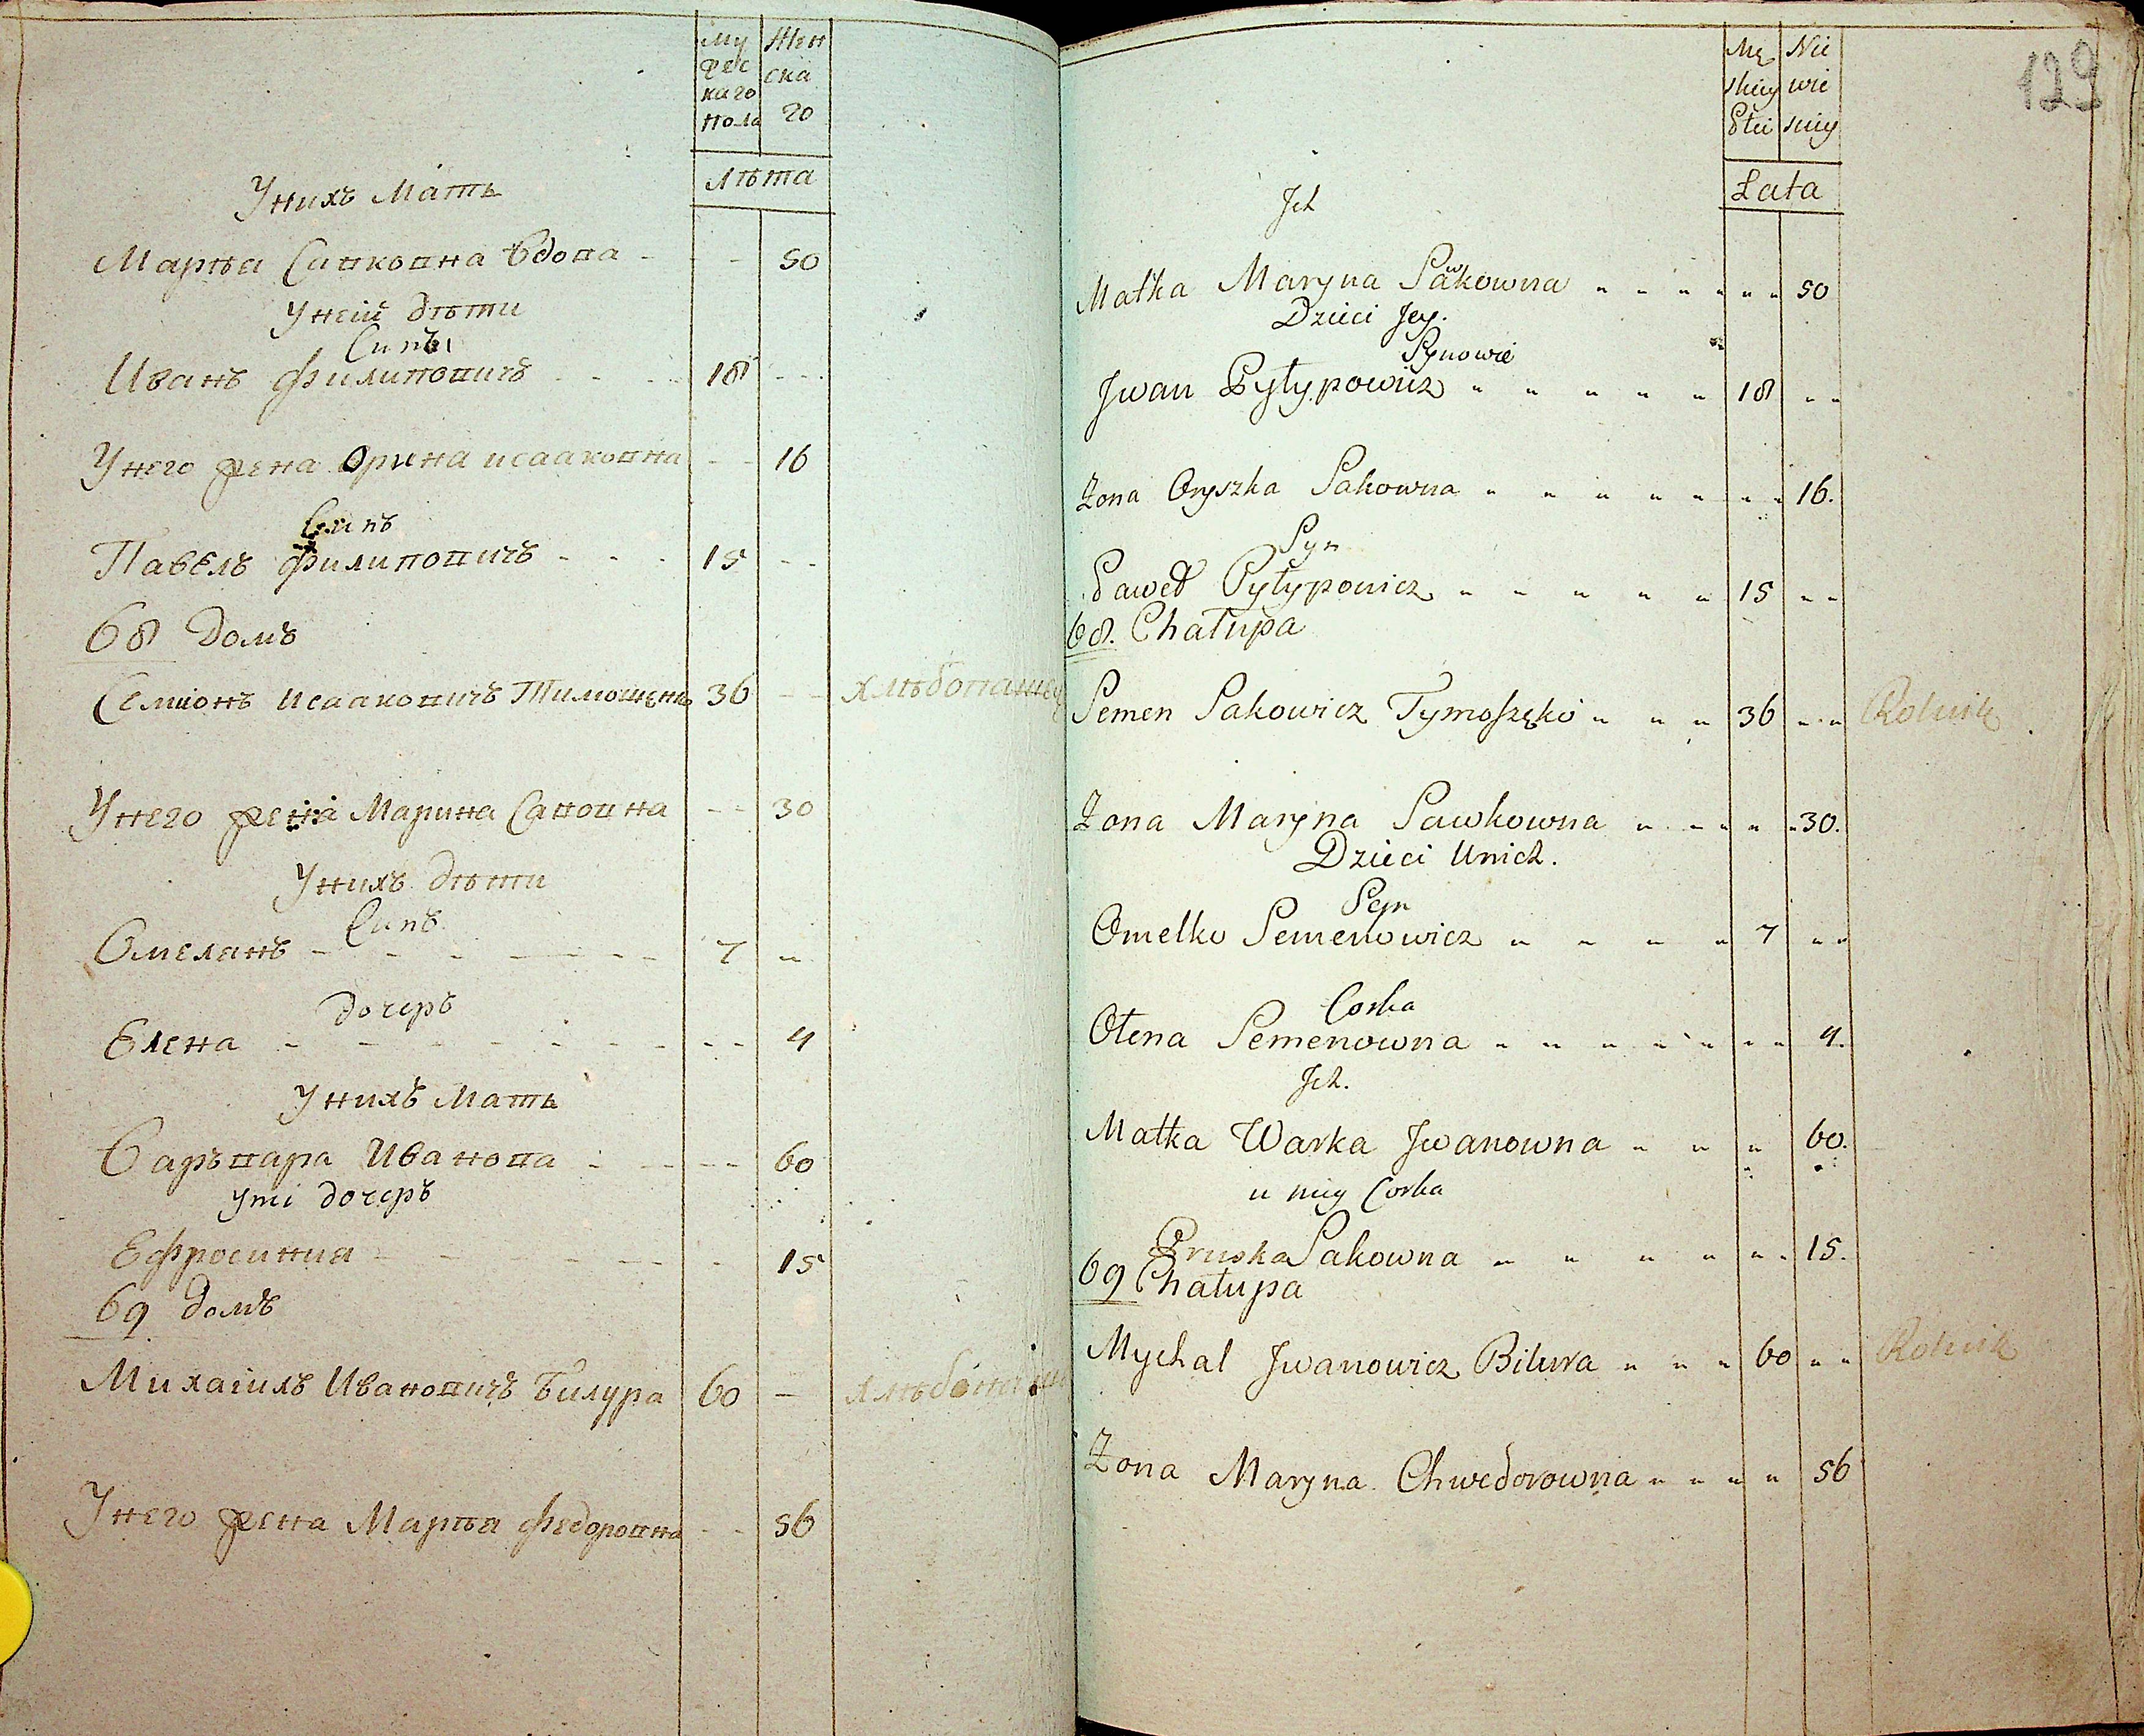 Му
жес
каго
пола
Жен
ска
го
Лѣта
Унихъ Мать
Марѣа Сапковна Вдова - - - 50
Уней дѣти
Сины
Иванъ Филиповичъ - - - 18 - - -
Унего жена Орина исааковна - - 16
Синъ
Павелъ Филиповичъ - - - 15 - -
68 домъ
Семионъ Исааковичъ Тимошенко 36 - - хлѣбопашец
Унего жена Марина Савовна - - 30
Унихъ дѣти
Синъ
Омеланъ - - - - - - - 7 -
дочеръ
Елена - - - - - - - - - 4
Унихъ Мать
Варъвара Ивановa - - - - - 60
Уті дочеръ
Ефросиния - - - - - - 15
69 домъ
Михаіилъ Ивановичъ Билура 60 - хлѣбопаш
Унего жена Марѣа Федоровна - - 56
129
Mę
skiey
Płci
Nie
wie
sciey
Lata
Jch
Matka Maryna Sawkowna " " " " " " 50
Dzieci Jey.
Synowie
Jwan Pyłypowicz " " " " " 18 " "
Zona Oryszka Sakowna " " " " " " " 16.
Syn
Paweł Pyłypowicz " " " " " 15 " "
68. Chałupa
Semen Sakowicz Tymoszęko " " " 36 " " Rolnik
Zona Maryna Sawkowna " " " " " 30.
Dzieci Unich.
Syn
Omelko Semenowicz " " " " 7 " "
Corka
Ołena Semenowna " " " " " " " 4.
Jch.
Matka Warka Jwanowna " " " 60.
u niey Corka
Pruska Sakowna " " " " " " 15.
69 Chałupa
Mychal Jwanowicz Bilura " " " 60 " " Rolnik
Zona Maryna Chwedorowna " " " " 56